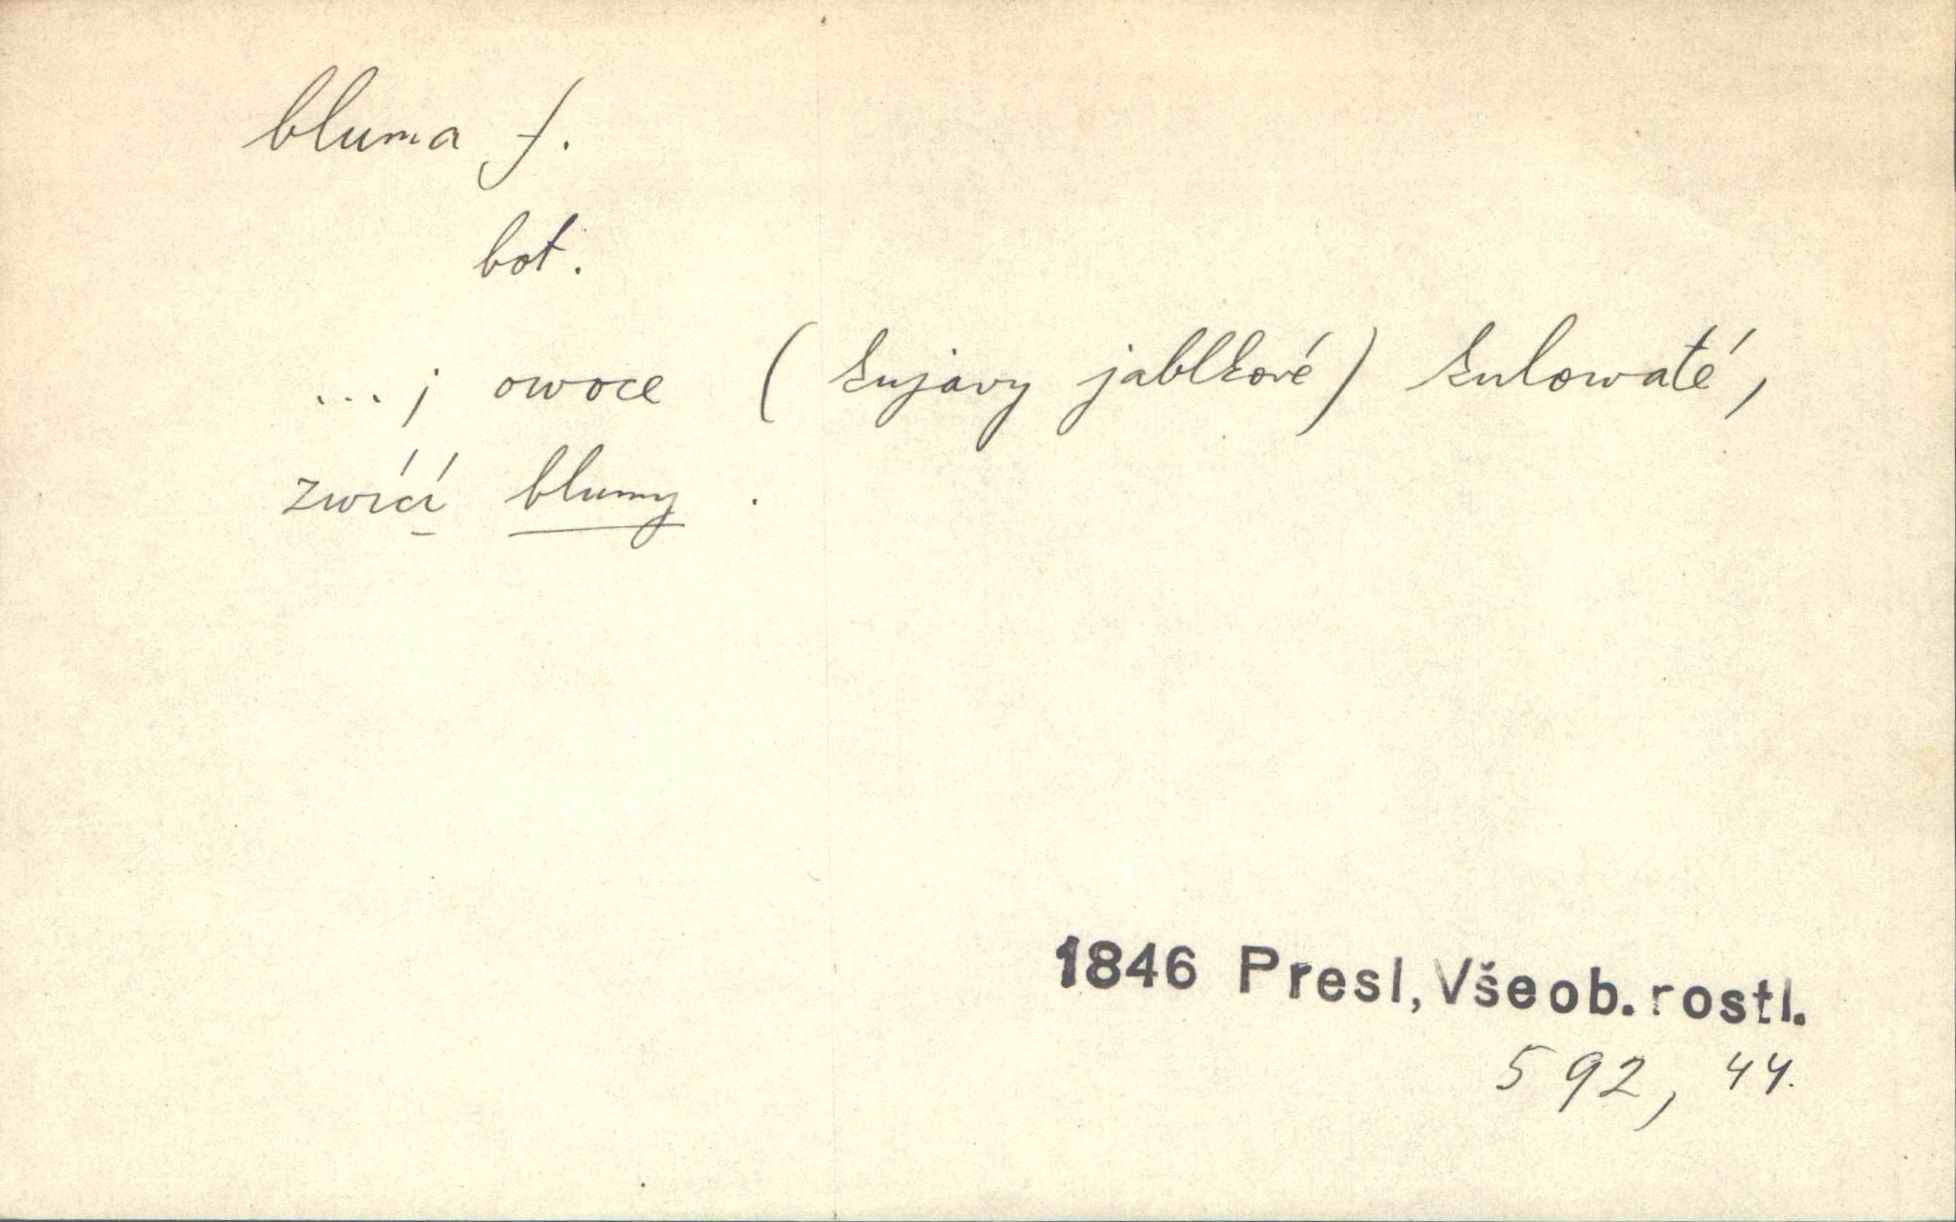 bluma f.
bot.
...; owoce (kujavy jablkové) kulowaté,
zwící blumy.
1846 Presl, Všeob. rostl.
592, 44.